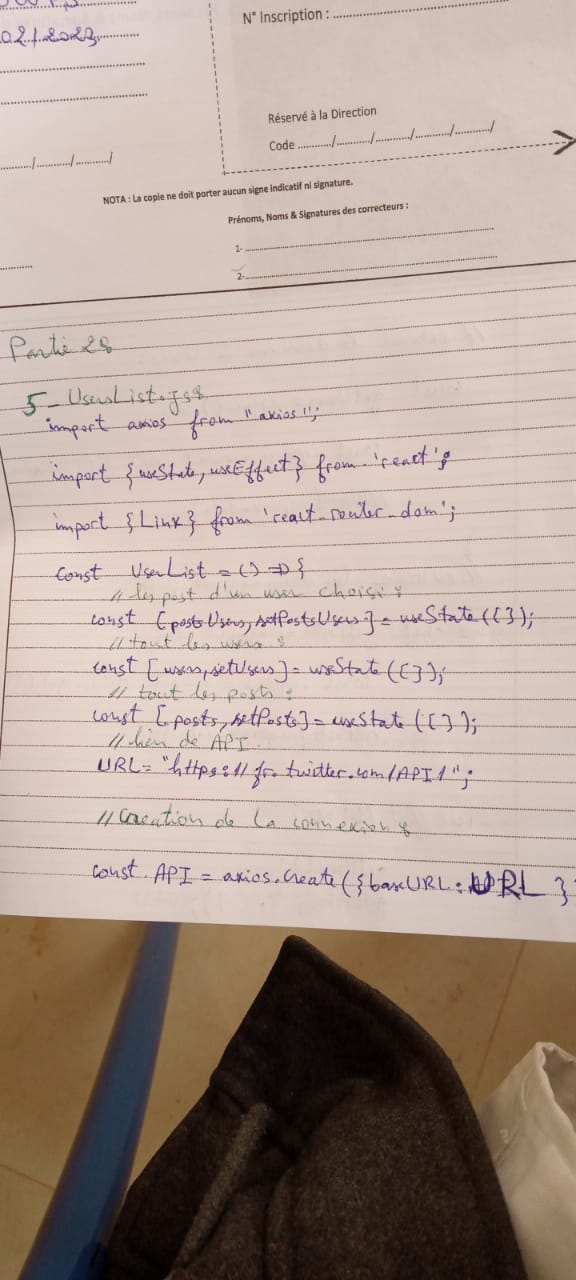 02/2023
N° Inscription :
Réservé à la Direction
Code ........../........../........../........../........../
NOTA : La copie ne doit porter aucun signe indicatif ni signature.
Prénoms, Noms & Signatures des correcteurs :
1-
2-
Partie 2:
5- UsersList.js:
import axios from "axios";
import {useState, useEffect} from 'react';
import {Link} from 'react-router-dom';
const UserList = () => {
// les post d'un user choisi :
const [postsUsers, setPostsUsers] = useState([]);
// tout les users :
const [users, setUsers] = useState([]);
// tout les posts :
const [posts, setPosts] = useState([]);
// lien de API
URL = "https://fr.twitter.com/API/";
// Creation de la connexion :
const API = axios.create({baseURL: URL }